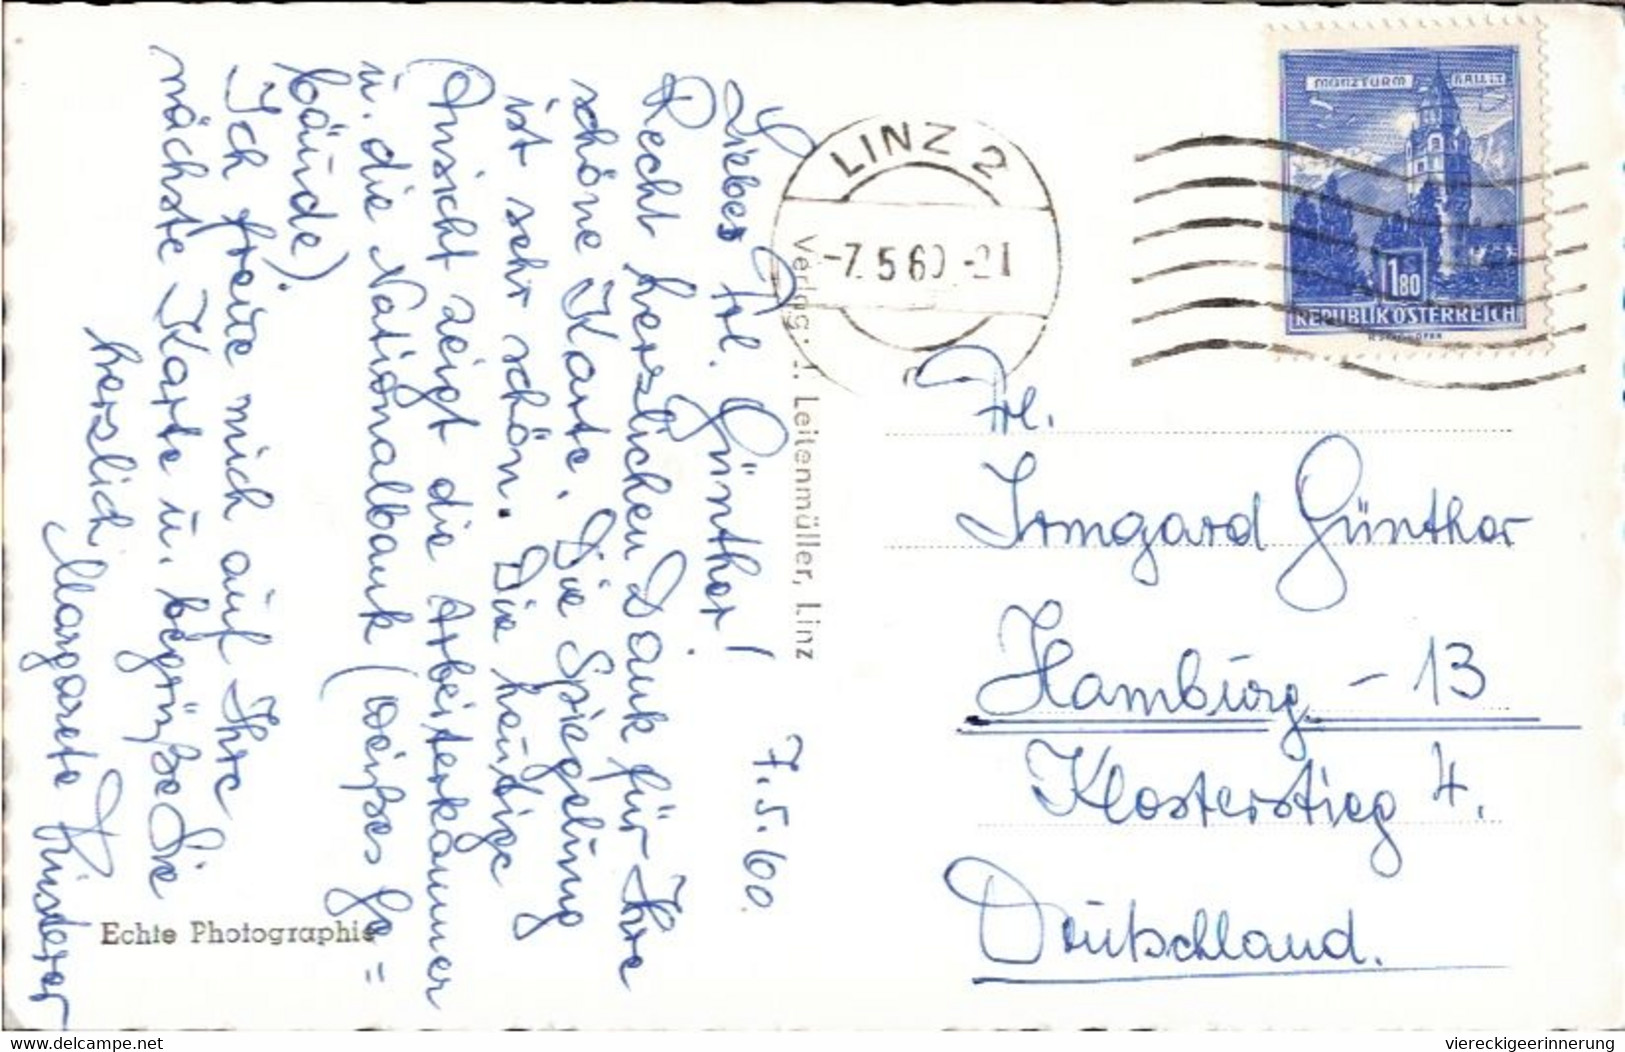 7.5.60.
Liebes Frl. Günther!
Recht herzlichen Dank für Ihre
schöne Karte. Die Spiegelung
ist sehr schön. Die heutige
Ansicht zeigt die Arbeiterkammer
u. die Nationalbank (weißes Ge=
bäude).
Ich freue mich auf Ihre
nächste Karte u. begrüße Sie
herzlich Margarete
Echte Photographie
Verlag: J. Leitenmüller, Linz
LINZ 2
-7.5.60-21
MÜNZTURM HALL I.T.
1.80
REPUBLIK ÖSTERREICH
Frl.
Irmgard Günther
Hamburg - 13
Klosterstieg 4.
Deutschland.
delcampe.net
viereckigeerinnerung